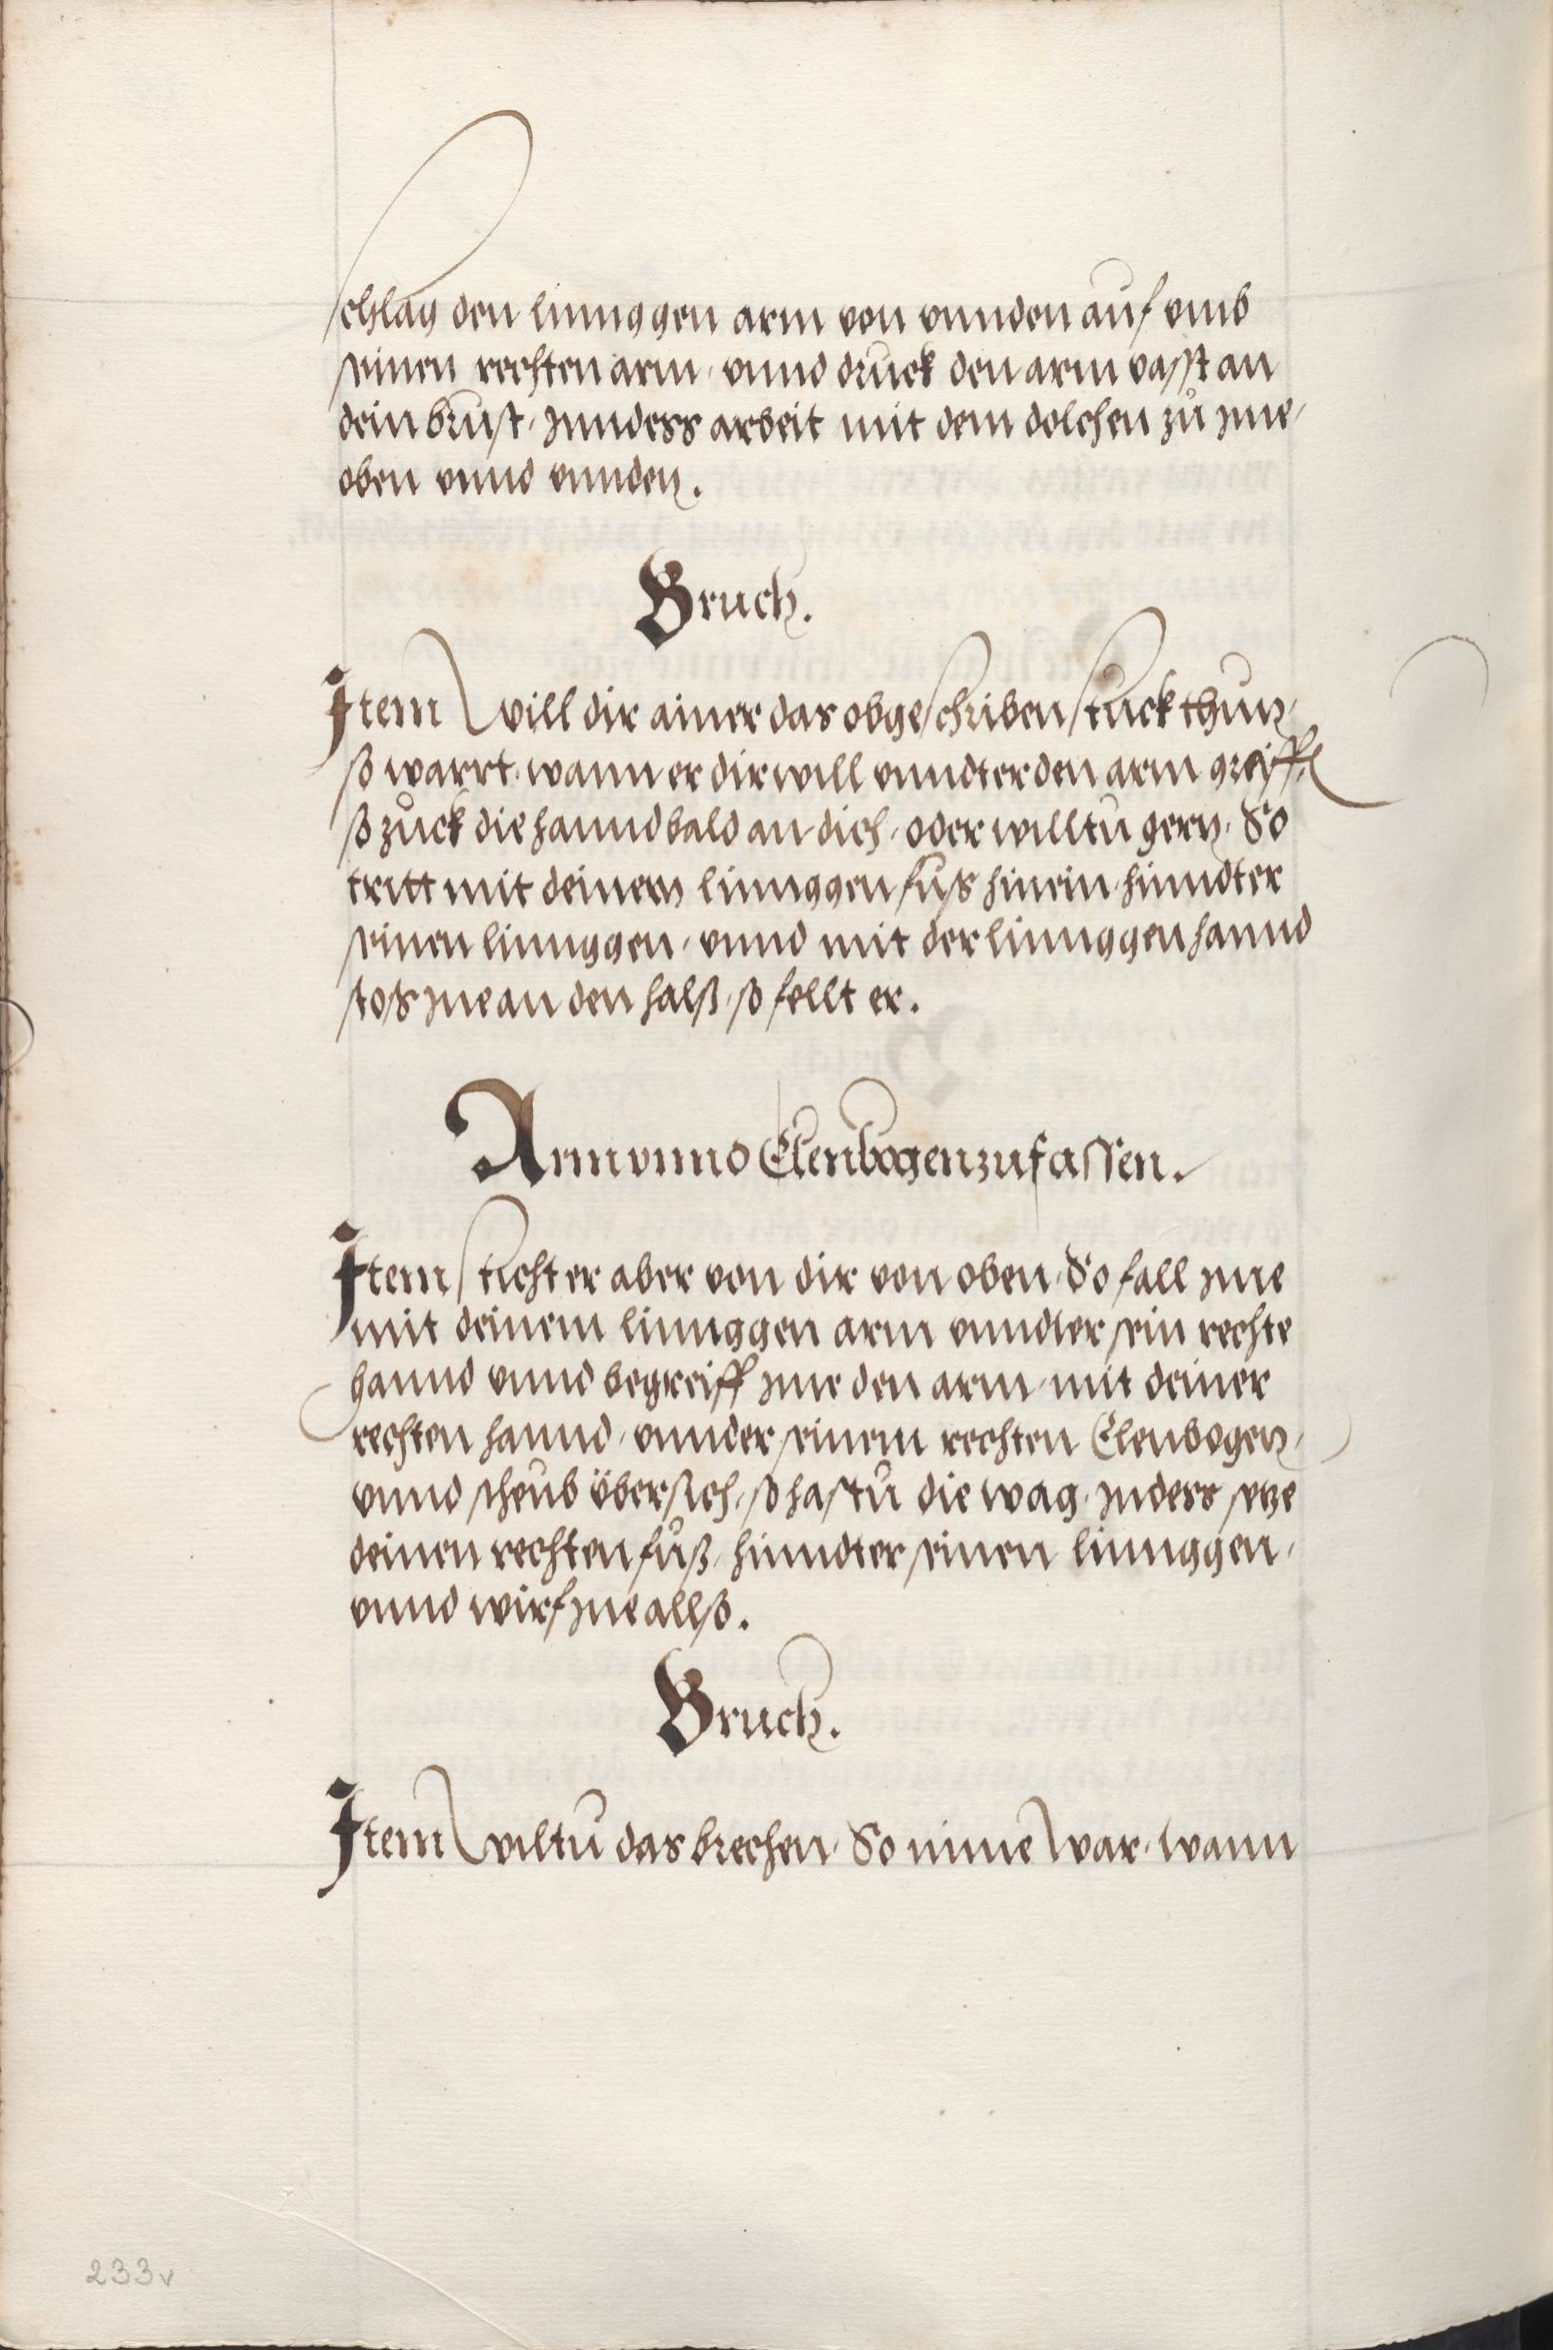 schlag den linnggen arm von vnnden auf vmb
seinen rechten arm, vnnd druck den arm vasst an
dein brust, Jnndess arbeit mit dem dolchen zů jme,
oben vnnd vnnden.
Bruch.
Item will dir ainer das obgeschriben stuck thun,
so warrt, wann er dir will vnndter den arm greiffen,
so zuck die hannd bald an dich, oder willtu gern, So
tritt mit deinem linnggen fůss hinein, hinndter
seinen linnggen, vnnd mit der linnggen hannd
stoss jne an den halß, so fellt er.
Arm vnnd Elenbogen zu fassen.
Item sticht er aber von dir von oben, So fall jme
mit deinem linnggen arm vnndter sein rechte
hannd vnnd begreiff jme den arm, mit deiner
rechten hannd, vnnder seinem rechten Elenbogen,
vnnd scheub übersich, so hastu die wag, Jndess setze
deinen rechten fůß, hinndter seinen linnggen,
vnnd wirf jne allso.
Bruch.
Item wiltu das brechen, So nime war, wann
233v